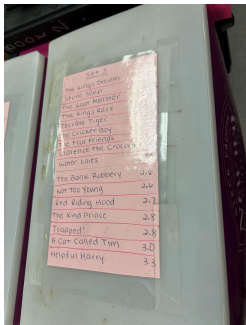 Set 3
The King's Dream
Stone Soup
The Goat Monster
The King's Race
Terrible Tiger
The Cricket Boy
The Four Friends
Clarence the Crocodile
Water Lilies
The Bank Robbery 2.6
Not Too Young 2.6
Red Riding Hood 2.7
The Kind Prince 2.8
Trapped! 2.8
A Cat Called Tim 3.0
Helpful Harry 3.3